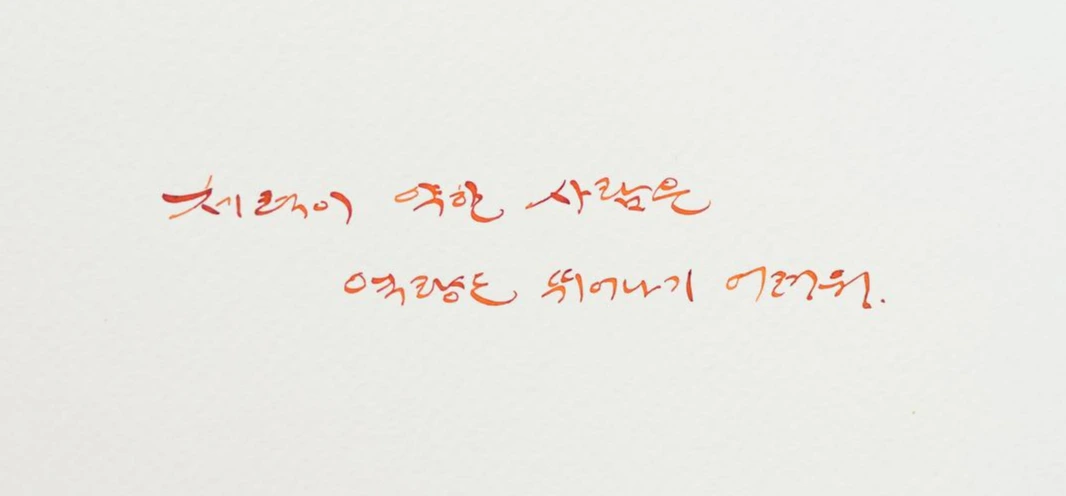 체력이 약한 사람은
역량도 뛰어나기 어려워.